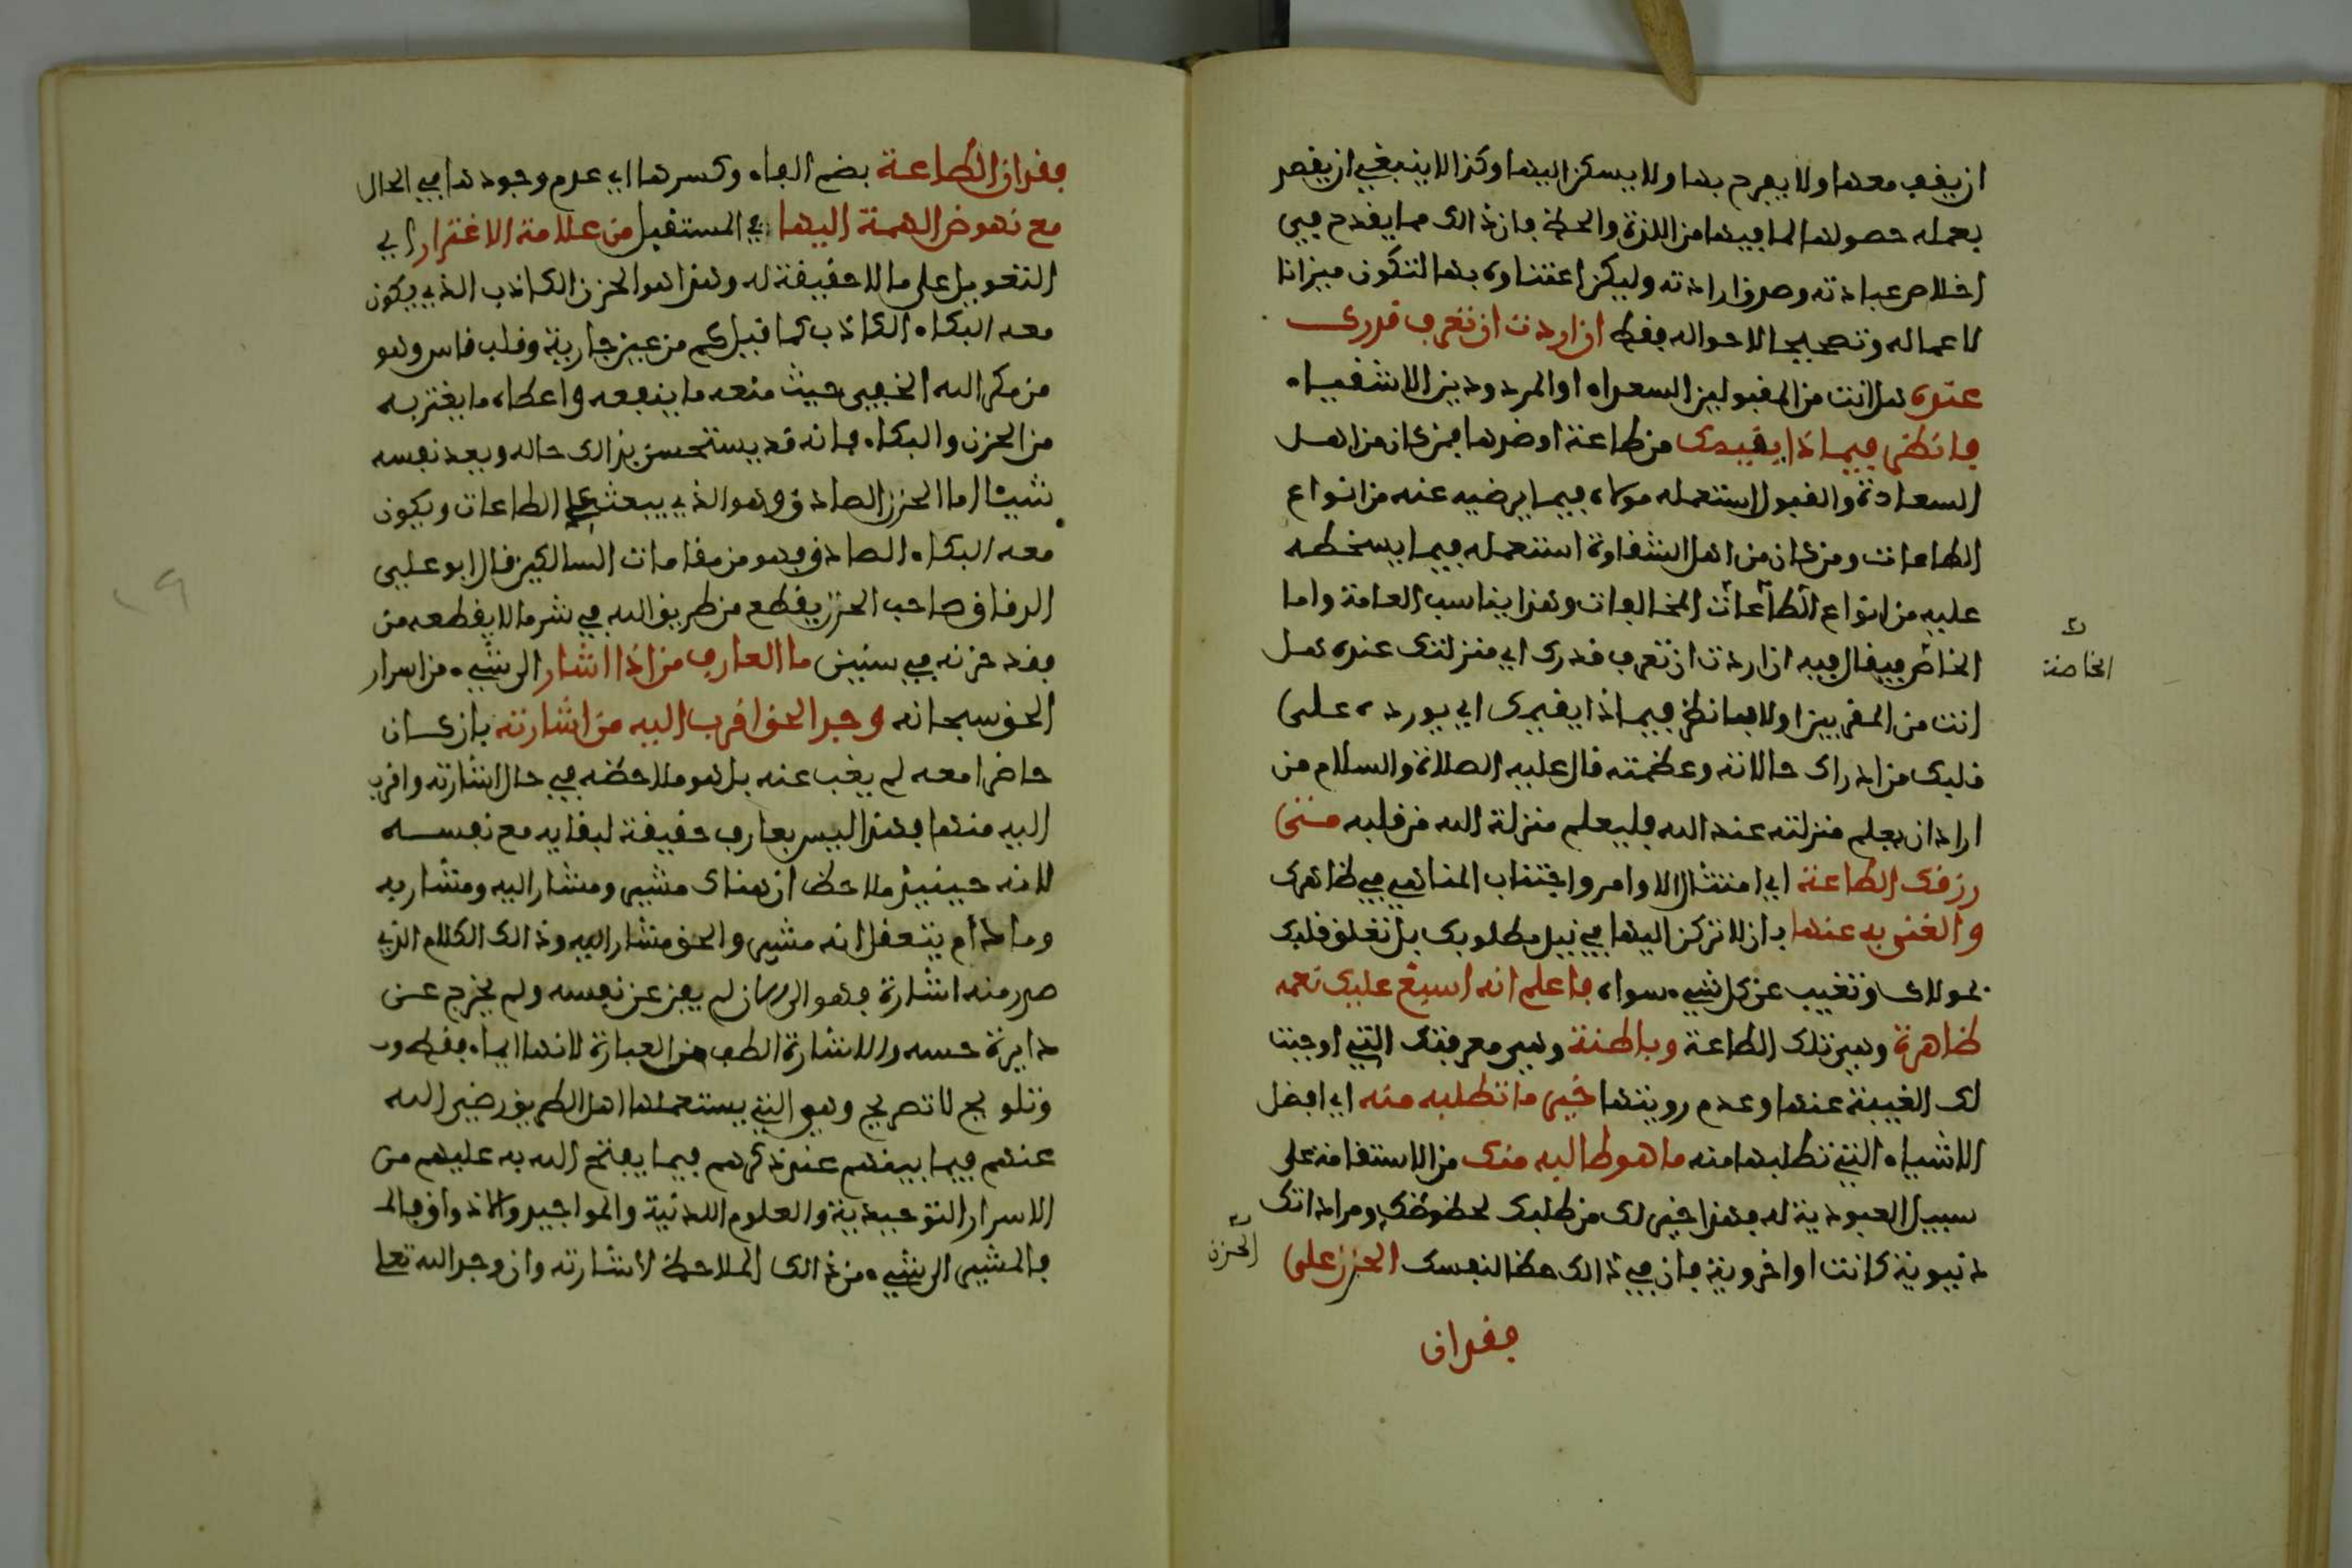 ان يقف معها ولا يفرح بها ولا يسكن اليها وكذا لا ينبغي ان يقصد
بعمله حصولها لما فيها من اللذة والحظ فان ذالك مما يقدح في
اخلاص عبادته وصدق ارادته وليكن اعتناوه بها لتكون ميزانا
لاعماله وتصحيحا لاحواله فقط ان اردت ان تعرف قدرك
عنده هل انت من المقبولين السعداء او المردودين الاشقياء
فانظر فيماذا يقيمك من طاعة او ضدها فمن كان من اهل
السعادة والقبول استعمله مولاه فيما يرضيه عنه من انواع
الطاعات ومن كان من اهل الشقاوة استعمله فيما يسخطه
عليه من انواع الطاعات المخالفات وهذا يناسب العامة واما
الخاص فيقال فيه ان اردت ان تعرف قدرك اي منزلتك عنده هل
انت من المقربين او لا فانظر فيماذا يقيمك اي يورده على
قلبك من ادراك حالاته وعظمته قال عليه الصلاة والسلام من
اراد ان يعلم منزلته عند الله فليعلم منزلة الله من قلبه متى
رزقك الطاعة اي امتثال الاوامر واجتناب المناهي في ظاهرك
والغنى به عنها بان لا تركن اليها في نيل مطلوبك بل تعلق قلبك
بمولاك وتغيب عن كل شيء سواه فاعلم انه اسبغ عليك نعمه
ظاهرة وهي تلك الطاعة وباطنة وهي معرفتك التي اوجبت
لك الغيبة عنها وعدم رويتها خير ما تطلبه منه اي افضل
الاشياء التي تطلبها منه ما هو طالبه منك من الاستقامة على
سبيل العبودية له فهذا خير لك من طلبك لحظوظك ومراداتك
دنيوية كانت او اخروية فان في ذالك حظا لنفسك الحزن على
فقدان
الخاصة
الحزن
فقدان الطاعة بضم الفاء وكسرها اي عدم وجودها في الحال
مع نهوض الهمة اليها في المستقبل من علامة الاغترار اي
التعويل على ما لا حقيقة له وهذا هو الحزن الكاذب الذي يكون
معه البكاء الكاذب كما قيل كم من عين جارية وقلب قاس وهو
من مكر الله الخفي حيث منعه ما ينفعه واعطاه ما يغتر به
من الحزن والبكاء فانه قد يستحسن بذالك حاله ويعد نفسه
شيئا اما الحزن الصادق وهو الذي يبعث على الطاعات ويكون
معه البكاء الصادق فهو من مقامات السالكين قال ابو علي
الدقاق صاحب الحزن يقطع من طريق الله في شهر ما لا يقطعه من
فقد حزنه في سنين ما العارف من اذا اشار الى شيء من اسرار
الحق سبحانه وجد الحق اقرب اليه من اشارته بان كان
حاضرا معه لم يغب عنه بل هو ملاحظه في حال اشارته واقرب
اليه منها فهذا ليس بعارف حقيقة لبقايه مع نفسه
لانه حينيذ ملاحظ ان هناك مشير ومشار اليه ومشار به
وما دام يتعقل انه مشير والحق مشار اليه وذالك الكلام الذي
صدر منه اشارة فهو الى الان لم يفن عن نفسه ولم يخرج عن
دايرة حسه والاشارة الطف من العبارة لانها ايماء فقط
وتلويح لا تصريح وهي التي يستعملها اهل الطريق رضي الله
عنهم فيما بينهم عند ذكرهم فيما يفتح الله به عليهم من
الاسرار التوحيدية والعلوم اللدنية والمواجيد والاذواق
فالمشير الى شيء من ذالك الملاحظ لاشارته وان وجد الله تعلى